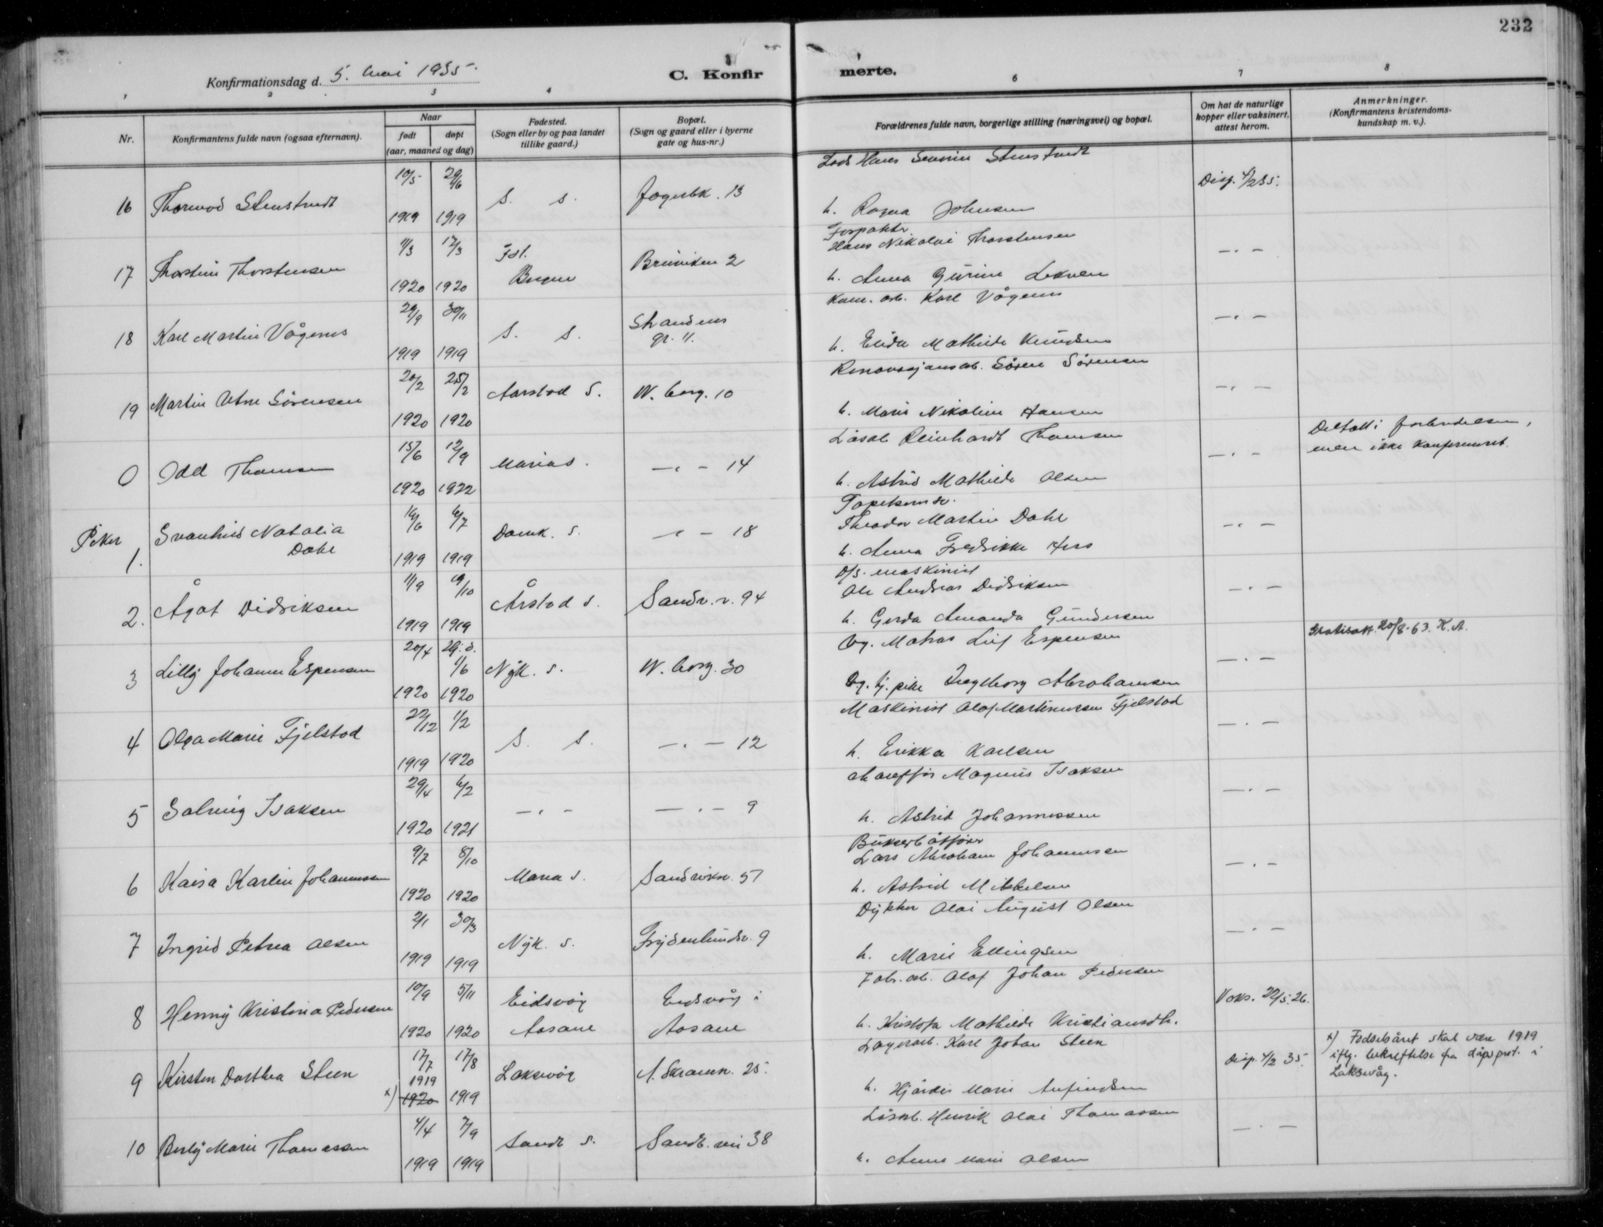 232
Konfirmationsdag d. 5. mai 1935.
C. Konfirmerte.
1 2 3 4 6 7 8
Nr.
Konfirmantens fulde navn (ogsaa efternavn).
Naar
født
døpt
(aar, maaned og dag)
Fødested.
(Sogn eller by og paa landet
tillike gaard.)
Bopæl.
(Sogn og gaard eller i byerne
gate og hus-nr.)
Forældrenes fulde navn, borgerlige stilling (næringsvei) og bopæl.
Om hat de naturlige
kopper eller vaksinert,
attest herom.
Anmerkninger.
(Konfirmantens kristendoms-
kundskap m. v.).
16 Thormod Stenstvedt 10/5 1919 29/6 1919 S. S. 13
Hans Severin Stenstvedt
h. Ragna Johnsen
Disp. 4/2 35.
17 Thorstein Thorstensen 1/3 1920 17/3 1920 2
Hans Nikolai Thorstensen
h. Anna Gurine
-"-
18 Karl Martin Vågenes 29/9 1919 30/11 1919 S. S. Strandens
gr. 11.
Karl Vågenes
h. Elida Mathilde Knudsen
-"-
19 Martin Arne Sørensen 20/2 1920 25/2 1920 Aarstad S. W. Korg. 10
Renovasjonsarb. Søren Sørensen
h. Marie Nikoline Hansen
-"-
0 Odd Thomsen 15/6 1920 12/9 1922 Maria s. -"- 14
Løsarb. Reinhardt Thomsen
h. Astrid Mathilde Olsen
-"-
Deltatt i forberedelsen,
men ikke konfirmert.
Piker
1. Svanhild Natalia
Dahl 16/6 1919 6/7 1919 Domk. S. -"- 18
Theodor Martin Dahl
h. Anna Fredrikke
-"-
2. Ågot Didriksen 11/9 1919 19/10 1919 Årstad s. Sandv. v. 94
D/S. maskinist
Ole Andreas Didriksen
h. Gerda Amanda Gundersen
-"-
3 Lilly Johanne Espensen 20/4 1920 1/6 1920 Nyk. s. W. Korg. 30
Ug. Matros Leif Espensen
Ug. tj. pike Ingeborg Abrahamsen
-"-
20/8-63. K.A.
4 Olga Marie Fjelstad 22/12 1919 1/2 1920 S. S. -"- 12
Maskinist Olaf Martinussen Fjelstad
h. Erikka Karlsen
-"-
5 Solveig Isaksen 29/4 1920 6/2 1921 -"- -"- 9
Magnus Isaksen
h. Astrid Johannessen
-"-
6 Kaisa Karlin Johannessen 9/7 1920 8/10 1920 Maria s. Sandviksv. 57
Bukserbåtfører
Lars Abraham Johannessen
h. Astrid Mikkelsen
-"-
7 Ingrid Petrea Olsen 2/1 1919 30/3 1919 Nyk. s. Frydenlundsv. 9
Dykker Olai August Olsen
h. Marie Ellingsen
-"-
8 Henny Kristina Pedersen 10/9 1920 5/11 1920 Eidsvåg
Aasane Eidsvåg i
Aasane
Fab. arb. Olaf Johan Pedersen
h. Kristofa Mathilde Kristiansdtr.
Vaks. 29/5. 26.
9 Kirsten Dorthea Steen 17/7 1919 x) 1920 17/8 1919 Laksevåg 25.
Lagerarb. Karl Johan Steen
h. Hjørdis Marie Anfindsen
Disp. 4/2 35.
x) Fødselsåret skal være 1919
iflg. bekreftelse fra dåpsprot. i
Laksevåg.
10 Marie Thomassen 4/4 1919 7/9 1919 Sandv. S. Sandv. vei 38
Løsarb. Henrik Olai Thomassen
h. Anna Marie Olsen
-"-